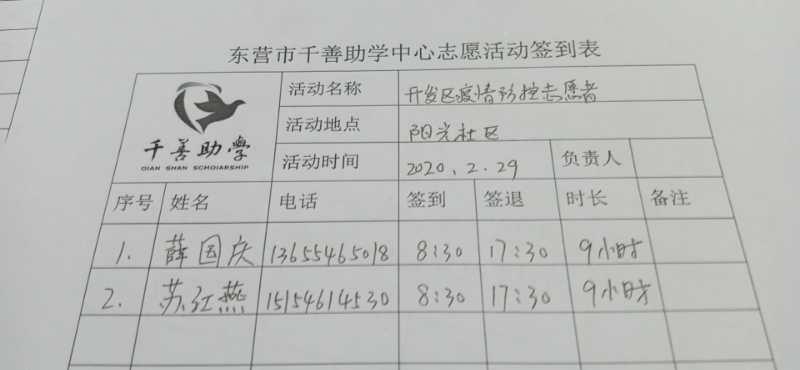 东营市千善助学中心志愿活动签到表
千善助學
QIAN SHAN SCHOIARSHIP
活动名称 开发区疫情防控志愿者
活动地点 阳光社区
活动时间 2020.2.29 负责人
序号 姓名 电话 签到 签退 时长 备注
1. 薛国庆 13655465018 8:30 17:30 9小时
2. 苏红燕 15154614530 8:30 17:30 9小时